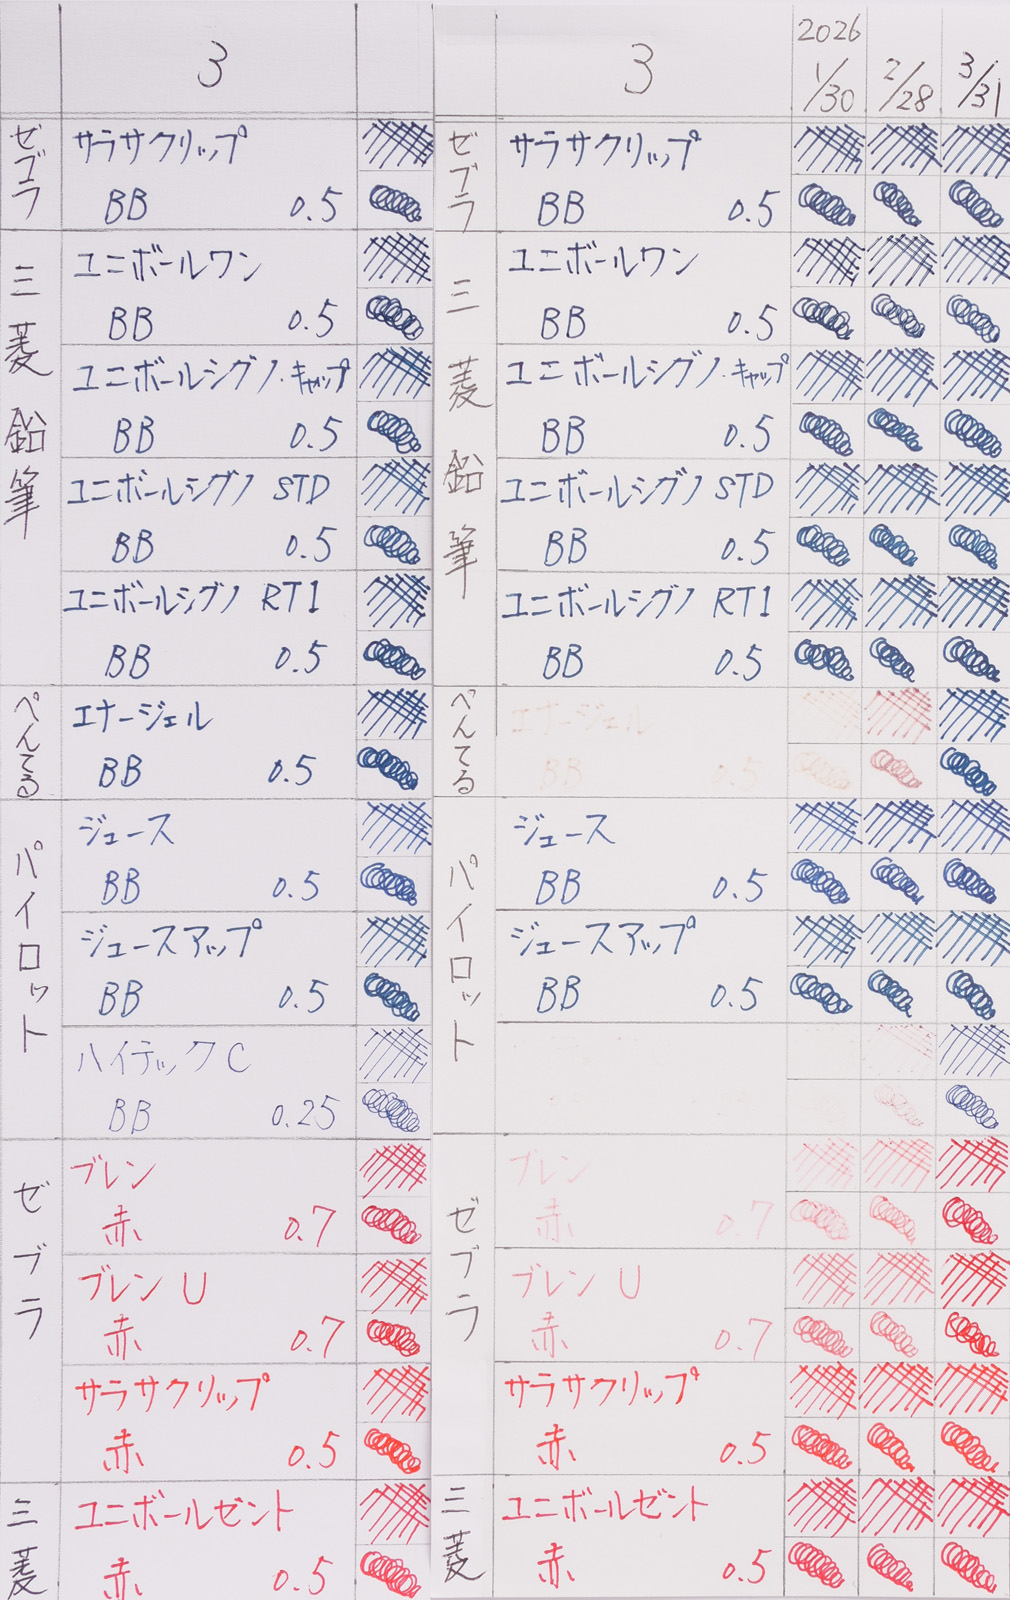 3
ゼブラ
サラサクリップ
BB 0.5
三菱鉛筆
ユニボールワン
BB 0.5
ユニボールシグノ・キャップ
BB 0.5
ユニボールシグノ STD
BB 0.5
ユニボールシグノ RT1
BB 0.5
ぺんてる
エナージェル
BB 0.5
パイロット
ジュース
BB 0.5
ジュースアップ
BB 0.5
ハイテックC
BB 0.25
ゼブラ
ブレン
赤 0.7
ブレン U
赤 0.7
サラサクリップ
赤 0.5
三菱
ユニボールゼント
赤 0.5
3
2026
1/30 2/28 3/31
ゼブラ
サラサクリップ
BB 0.5
三菱鉛筆
ユニボールワン
BB 0.5
ユニボールシグノ・キャップ
BB 0.5
ユニボールシグノ STD
BB 0.5
ユニボールシグノ RT1
BB 0.5
ぺんてる
エナージェル
BB 0.5
パイロット
ジュース
BB 0.5
ジュースアップ
BB 0.5
ゼブラ
ブレン
赤 0.7
ブレン U
赤 0.7
サラサクリップ
赤 0.5
三菱
ユニボールゼント
赤 0.5